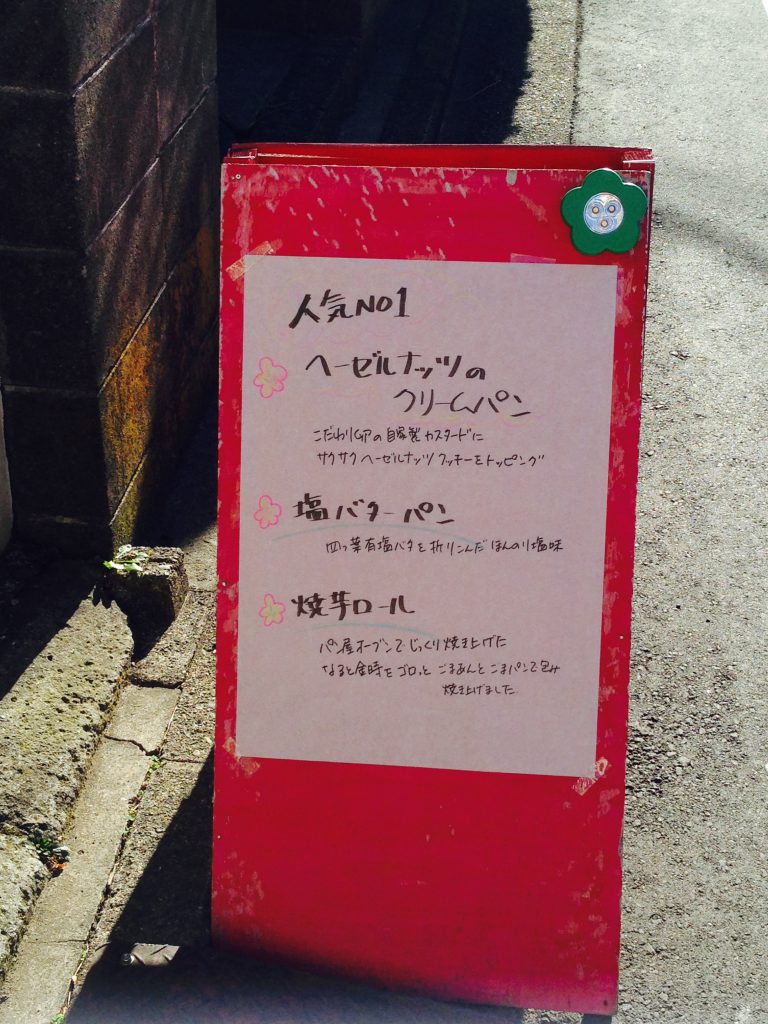 人気NO1
ヘーゼルナッツの
クリームパン
こだわり卵の自家製カスタードに
サクサクヘーゼルナッツクッキーをトッピング
塩バターパン
四つ葉有塩バタを折りこんだほんのり塩味
焼芋ロール
パン屋オーブンでじっくり焼き上げた
なると金時をゴロっとごまあんとごまパンで包み
焼き上げました